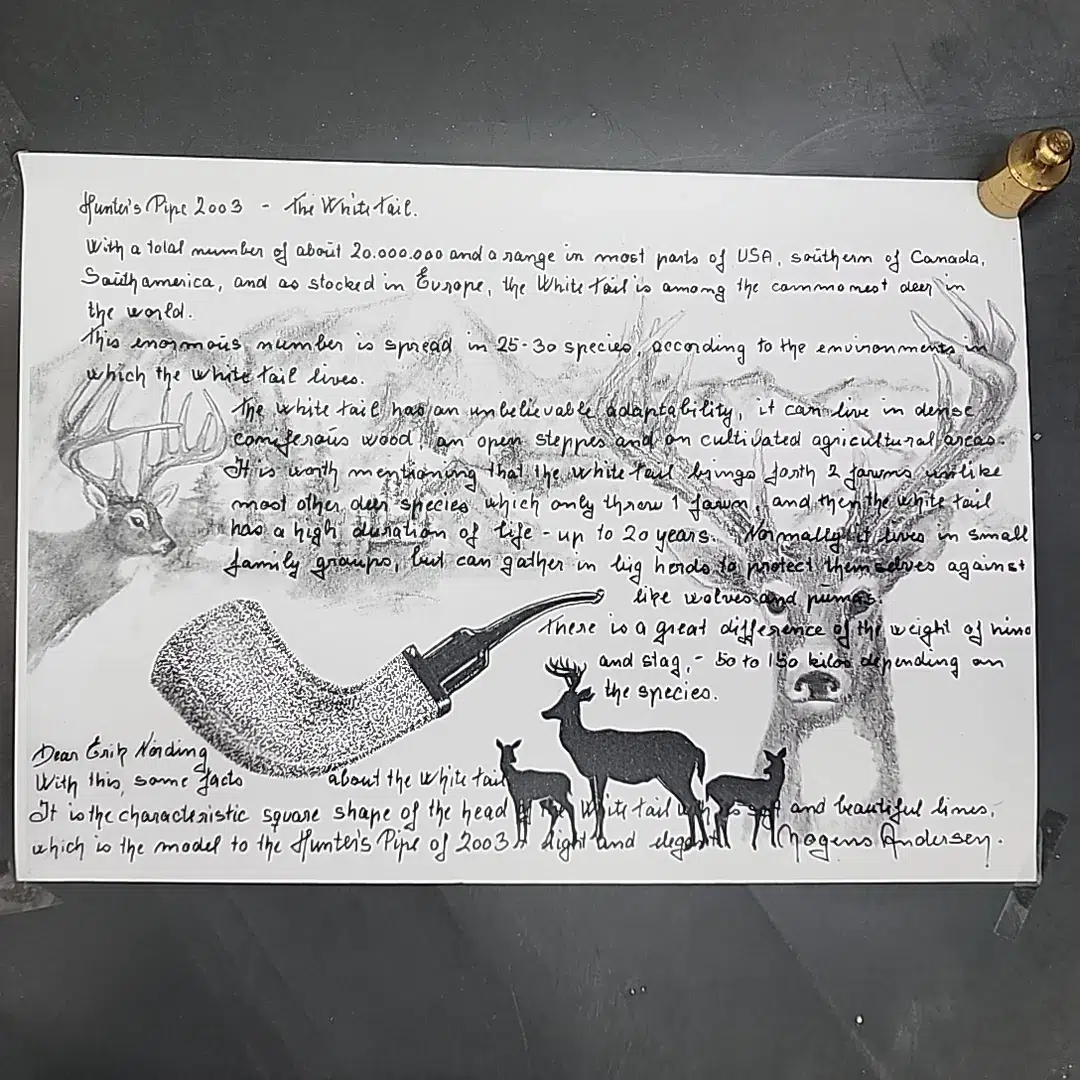 Hunter's Pipe 2003 - The White tail.
With a total number of about 20.000.000 and a range in most parts of USA, southern of Canada,
Southamerica, and as stocked in Europe, the White tail is among the commonest deer in
the world.
This enormous number is spread in 25-30 species, according to the environments in
which the white tail lives.
The white tail has an unbelievable adaptability, it can live in dense
coniferous wood, on open steppes and on cultivated agricultural areas.
It is worth mentioning that the white tail brings forth 2 fawns unlike
most other deer species which only throw 1 fawn, and then the white tail
has a high duration of life - up to 20 years. Normally it lives in small
family groups, but can gather in big herds to protect themselves against
like wolves and pumas.
There is a great difference of the weight of hind
and stag, - 50 to 150 kilos depending on
the species.
Dear Erik Nørding
With this, some facts about the white tail
It is the characteristic square shape of the head of the White tail with its and beautiful lines,
which is the model to the Hunter's Pipe of 2003. Light and elegant Mogens Andersen.